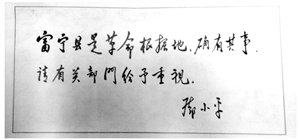 富宁县是革命根据地,确有其事.
请有关部門给予重视.
邓小平